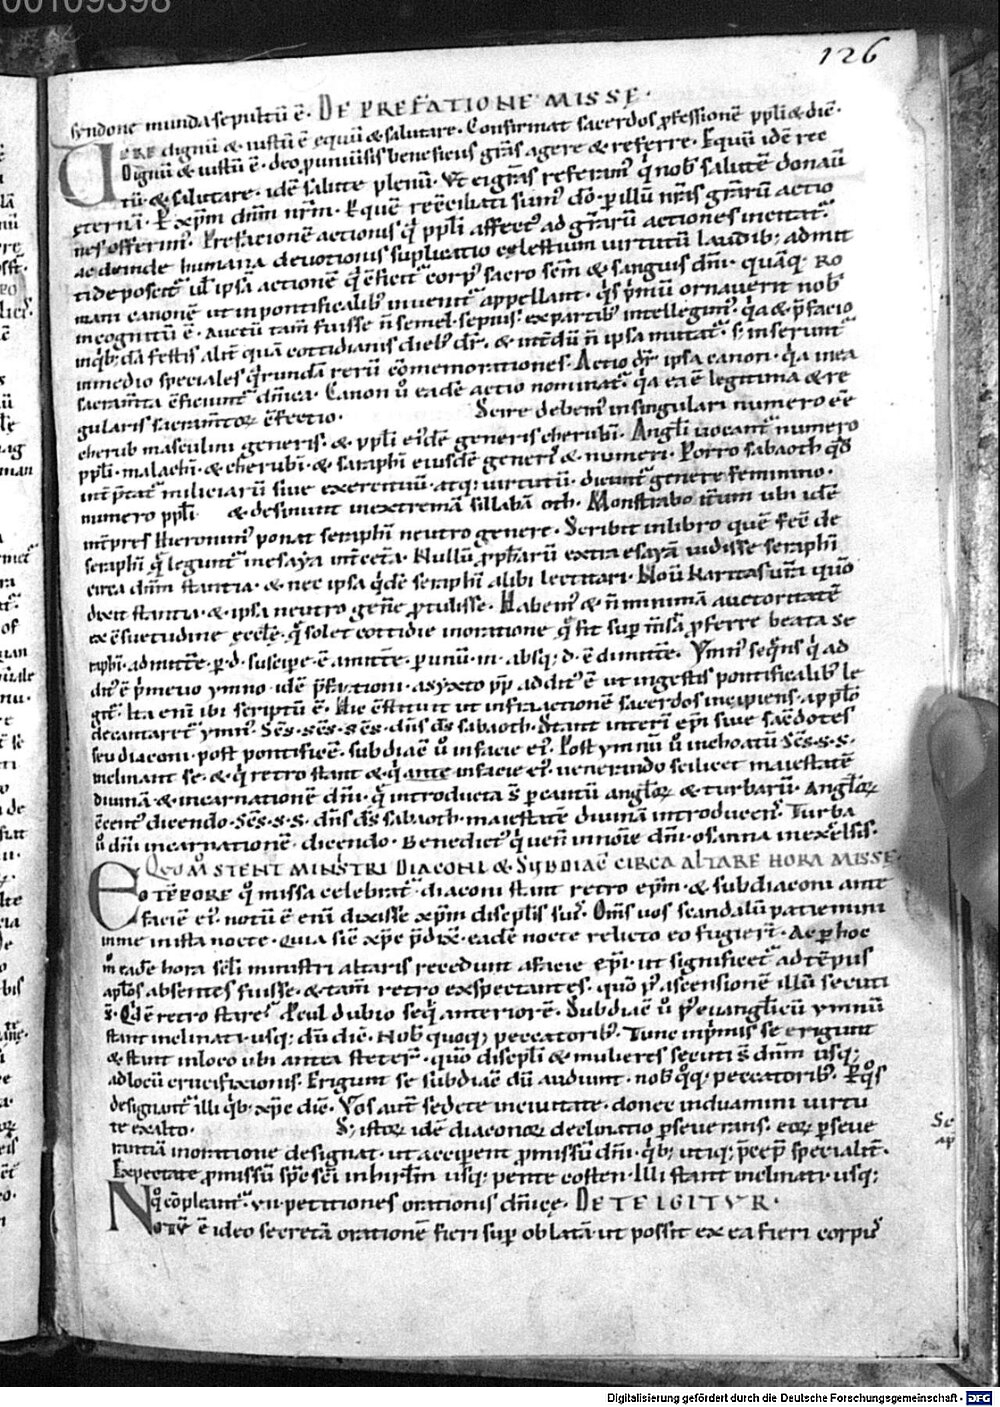 00109398
126
syndone munda sepultū ē· DE PREFATIONE MISSĘ·
VERE dignū & iustū ē equū & salutare· Confirmat sacerdos ꝓfessionē ppli & diē·
Dignū & iustū ē· deo ꝓ suis beneficiis grās agere & referre· Equū idē rec
tū· & salutare· idē salute plenū· Vt ei grās referamꝰ q̇ nob salutē donaū
ęternā· P xp̄m dn̄m nr̄m· P quē recc̄iliati sumꝰ dō· p illū nr̄as grārū actio
nes offerimꝰ· Prefacionē actionis q̇ ppli affectꝰ ad grārū actiones incitat·
ac deinde humana deuotionis suplicatio cęlestium uirtutū laudib; admit
ti deposcit· ul ipsā actionē q̇ c̄ficit corpꝰ sacro scm̄ & sanguis dn̄i· quāq; ro
mani canonē ut in pontificalib inuenit appellant· q̇s p̄mū ornauerit nob
incognitū ē· Auctū tam̄ fuisse n̄ semel· sepiusꝰ ex partib intellegimꝰ· q̇a & p̄facio
inq̇b;dā festis alit̄ quā cottidianis dieb; dr̄· & int̄dū n̄ ipsa mutat· s; inserunt
in medio speciales q̇rundā rerū cōmemorationes· Actio dr̄ ipsa canon· q̇a in ea
sacram̄ta c̄ficiunt dn̄ica· Canon u̇ eadē actio nominat· q̇a ea ē legitima & re
gularis sacram̄toꝝ c̄fectio· Scire debemꝰ in singulari numero eē
cherub masculini generis· & ppli eiꝰdē generis cherubī· Angli uocant numero
ppli· malachī· & cherubī· & saraphī eiusdē generis & numeri· Porro sabaoth q̇d
int̄p̄tat miliciarū siue exercituū· atq; uirtutū· dicunt genere feminino·
numero ppli & desinunt in extremā sillabā oth· Monstrabo it̄um ubi idē
int̄pres Hieronimꝰ ponat seraphī neutro genere· Scribit in libro quē fec̄ de
seraphī q̇ legunt in esaya int̄ cet̄a· Nullū ꝓphārū extra esayā uidisse seraphī
circa dn̄m stantia· & nec ipsa q̇dē seraphī alibi lectitari·
dixit stantia· & ipsa neutro gen̄e ꝓtulisse· Habemꝰ & n̄ minimā auctoritatē
ex c̄suetudine ęccłę· q̇ solet cottidie in oratione q̇ fit sup m̄sā ꝓferre beata se
raphī· admitt̄e· p·d· suscipe· ē amitt̄e· p unū·m· absq; d· ē dimitt̄e· Ymnꝰ seq̇ns q̇ ad
ditꝰ ē p̄meuo ymno· idē p̄fationi· a syxto pp̄ additꝰ ē ut in gestis pontificalib le
git· Ita enī ibi scriptū ē· Hic c̄stituit ut infra actionē sacerdos incipiens· a pplō
decantaret ymnꝰ· Sc̄s· sc̄s· sc̄s· dn̄s ds̄ sabaoth· Stant interī epī siue sac̄dotes
seu diaconi· post pontificē· subdiac̄ u̇ in facie eiꝰ· Post ymnū u̇ inchoatū Sc̄s·s·s·
inclinant se· & q̇ retro stant & q̇ ante in facie eiꝰ· uenerando scilicet maiestatē
diuinā & incarnationē dn̄i· q̇ introducta s̄ p cantū angloꝝ & turbarū· Angloꝝ
c̄cent dicendo· Sc̄s·s·s· dn̄s ds̄ sabaoth· maiestatē diuinā introducenꝰ· Turba
u̇ dn̄i incarnationē· dicendo· Benedictꝰ q̇ uen̄ in noīe dn̄i· osanna in excelsis·
QVOMº STENT MINISTRI DIACONI & SVBDIAC̄ CIRCA ALTARE HORA MISSĘ
EO TĒPORE q̇ missa celebrat· diaconi stant retro epm̄· & subdiaconi ante
faciē eiꝰ· notū ē enī dixisse xp̄m discipłis suis· Om̄s uos scandalū patiemini
in me in ista nocte· Quia sic̄ xp̄c p̄dix̄· eadē nocte relicto eo fugierꝰ· Ac p hoc
in eadē hora sc̄i ministri altaris recedunt a facie epī· ut significet ad tēpus
apłos absentes fuisse· & tam̄ retro exspectantes· quo p̄ ascensionē illū secuti
s̄· Qd ē retro stare· Pcul dubio seq̇ anteriorē· Subdiac̄ u̇ p̄ euanglicū ymnū
stant inclinati· usq; dū diē· Nob quoq; peccatorib· Tunc inp̄mis se erigunt
& stant in loco ubi antea stetert̄· quo discipłi & mulieres secuti s̄ dn̄m usq;
ad locū crucifixionis· Erigunt se subdiac̄ dū audiunt· nob q̇q; peccatorib·
designant illi q̇b; xp̄c diē· Vos aut̄ sedete in ciuitate· donec induamini uirtu
te ex alto· S; istoꝝ idē diaconoꝝ declinatio pseuerans· eoꝝ pseue
rantiā in oratione designat· ut acciperent ꝓmissū dn̄i· q̇b; utiq; p̄cep̄ specialit̄·
Expectate ꝓmissū sp̄c sc̄i in hirl̄m usq; pentecosten· Illi stant inclinati· usq;
q̇ cōpleant· vii· petitiones orationis dn̄icę· DE TE IGITVR·
NOTV̄ ē ideo secretā orationē fieri sup oblatā· ut possit ex ea fieri corpꝰ
Digitalisierung gefördert durch die Deutsche Forschungsgemeinschaft - DFG